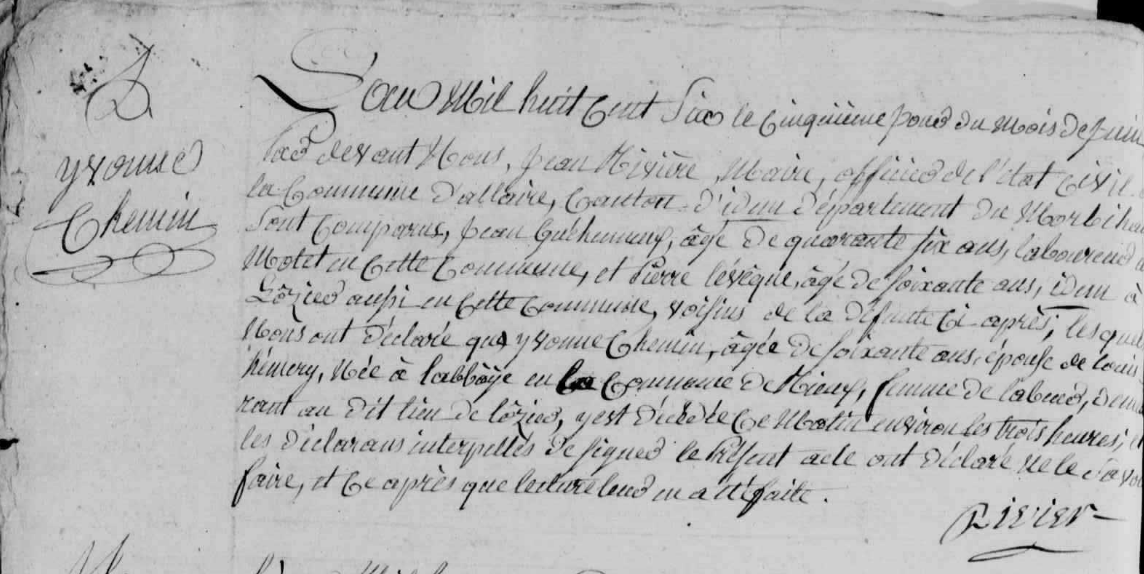 D.
yvonne
Chemin
L'an Mil huit Cent Six le Cinquième jour du Mois de juin
Par devant Nous, Jean Rivière, Maire, officier de l'état Civil
la Commune d'allaire, Canton d'idem département du Morbihan
Sont Comparus, Jean Guéhenneux, âgé de quarante six ans, laboureur
en Cette Commune, et Pierre lévêque, âgé de soixante ans, idem à
Lozier aussi en Cette Commune, voisins de la défunte Ci après; lesquels
Nous ont déclaré que yvonne Chemin, âgée de soixante ans, épouse de louis
hémery, Née à l'abbaÿe en la Commune de Rieux, femme de labeur, demeu
rant au dit lieu de lozier, y est décédée Ce Matin environ les trois heures;
les déclarans interpellés de signer le Présent acte ont déclaré ne le Savoir
faire, et Ce après que lecture leur en a été faite.
Rivier
L'an Mil